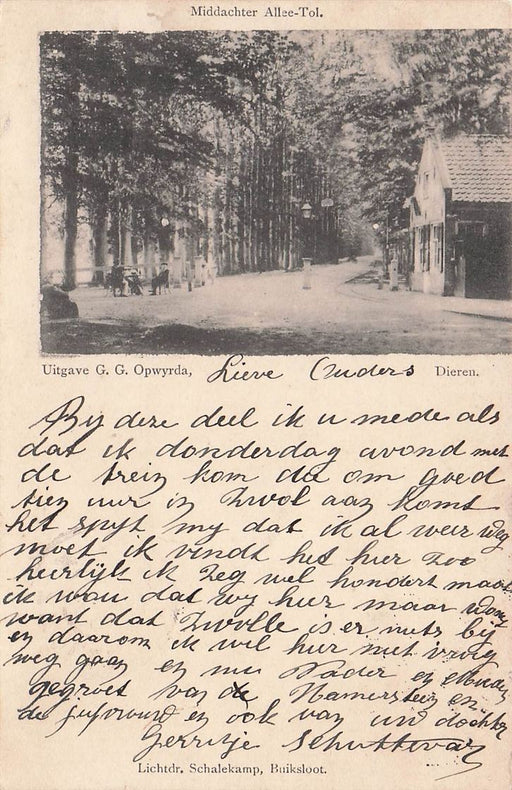 Middachter Allee-Tol.
Uitgave G. G. Opwyrda, Lieve Ouders Dieren.
Bij deze deel ik u mede als
dat ik donderdag avond met
de trein kom die om goed
tien uur in Zwol aan komt
het spijt my dat ik al weer weg
moet ik vindt het hier zoo
heerlijk ik zeg wel hondert maal
ik wou dat wy hier maar
want dat Zwolle is er niets bij
en daarom ik wil hier niet vroeg
weg gaan en nu Vader en Moeder
gegroet van de en
de jufvrouw en ook van uw dochter
Gerritje Schuttevaar
Lichtdr. Schalekamp, Buiksloot.